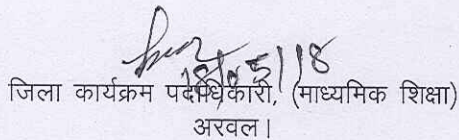 18/05/18
जिला कार्यक्रम पदाधिकारी, (माध्यमिक शिक्षा)
अरवल।